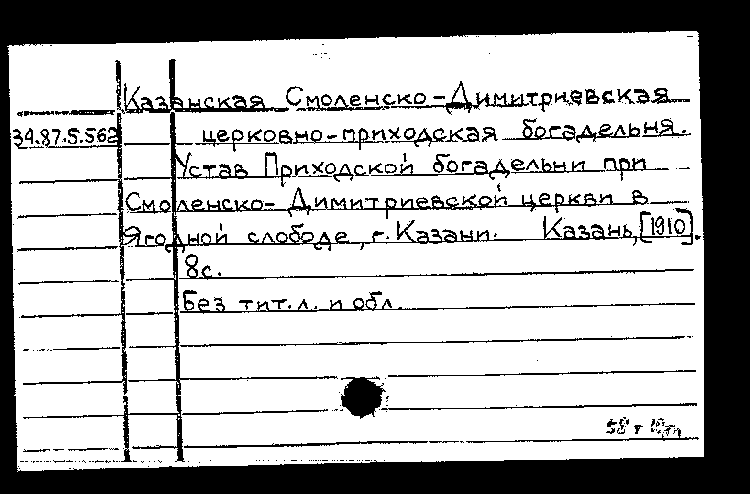 Казанская Смоленско-Димитриевская
34.87.5.562 церковно-приходская богадельня.
Устав Приходской богадельни при
Смоленско-Димитриевской церкви в
Ягодной слободе, г. Казани. Казань, [1910].
8с.
Без тит.л. и обл.